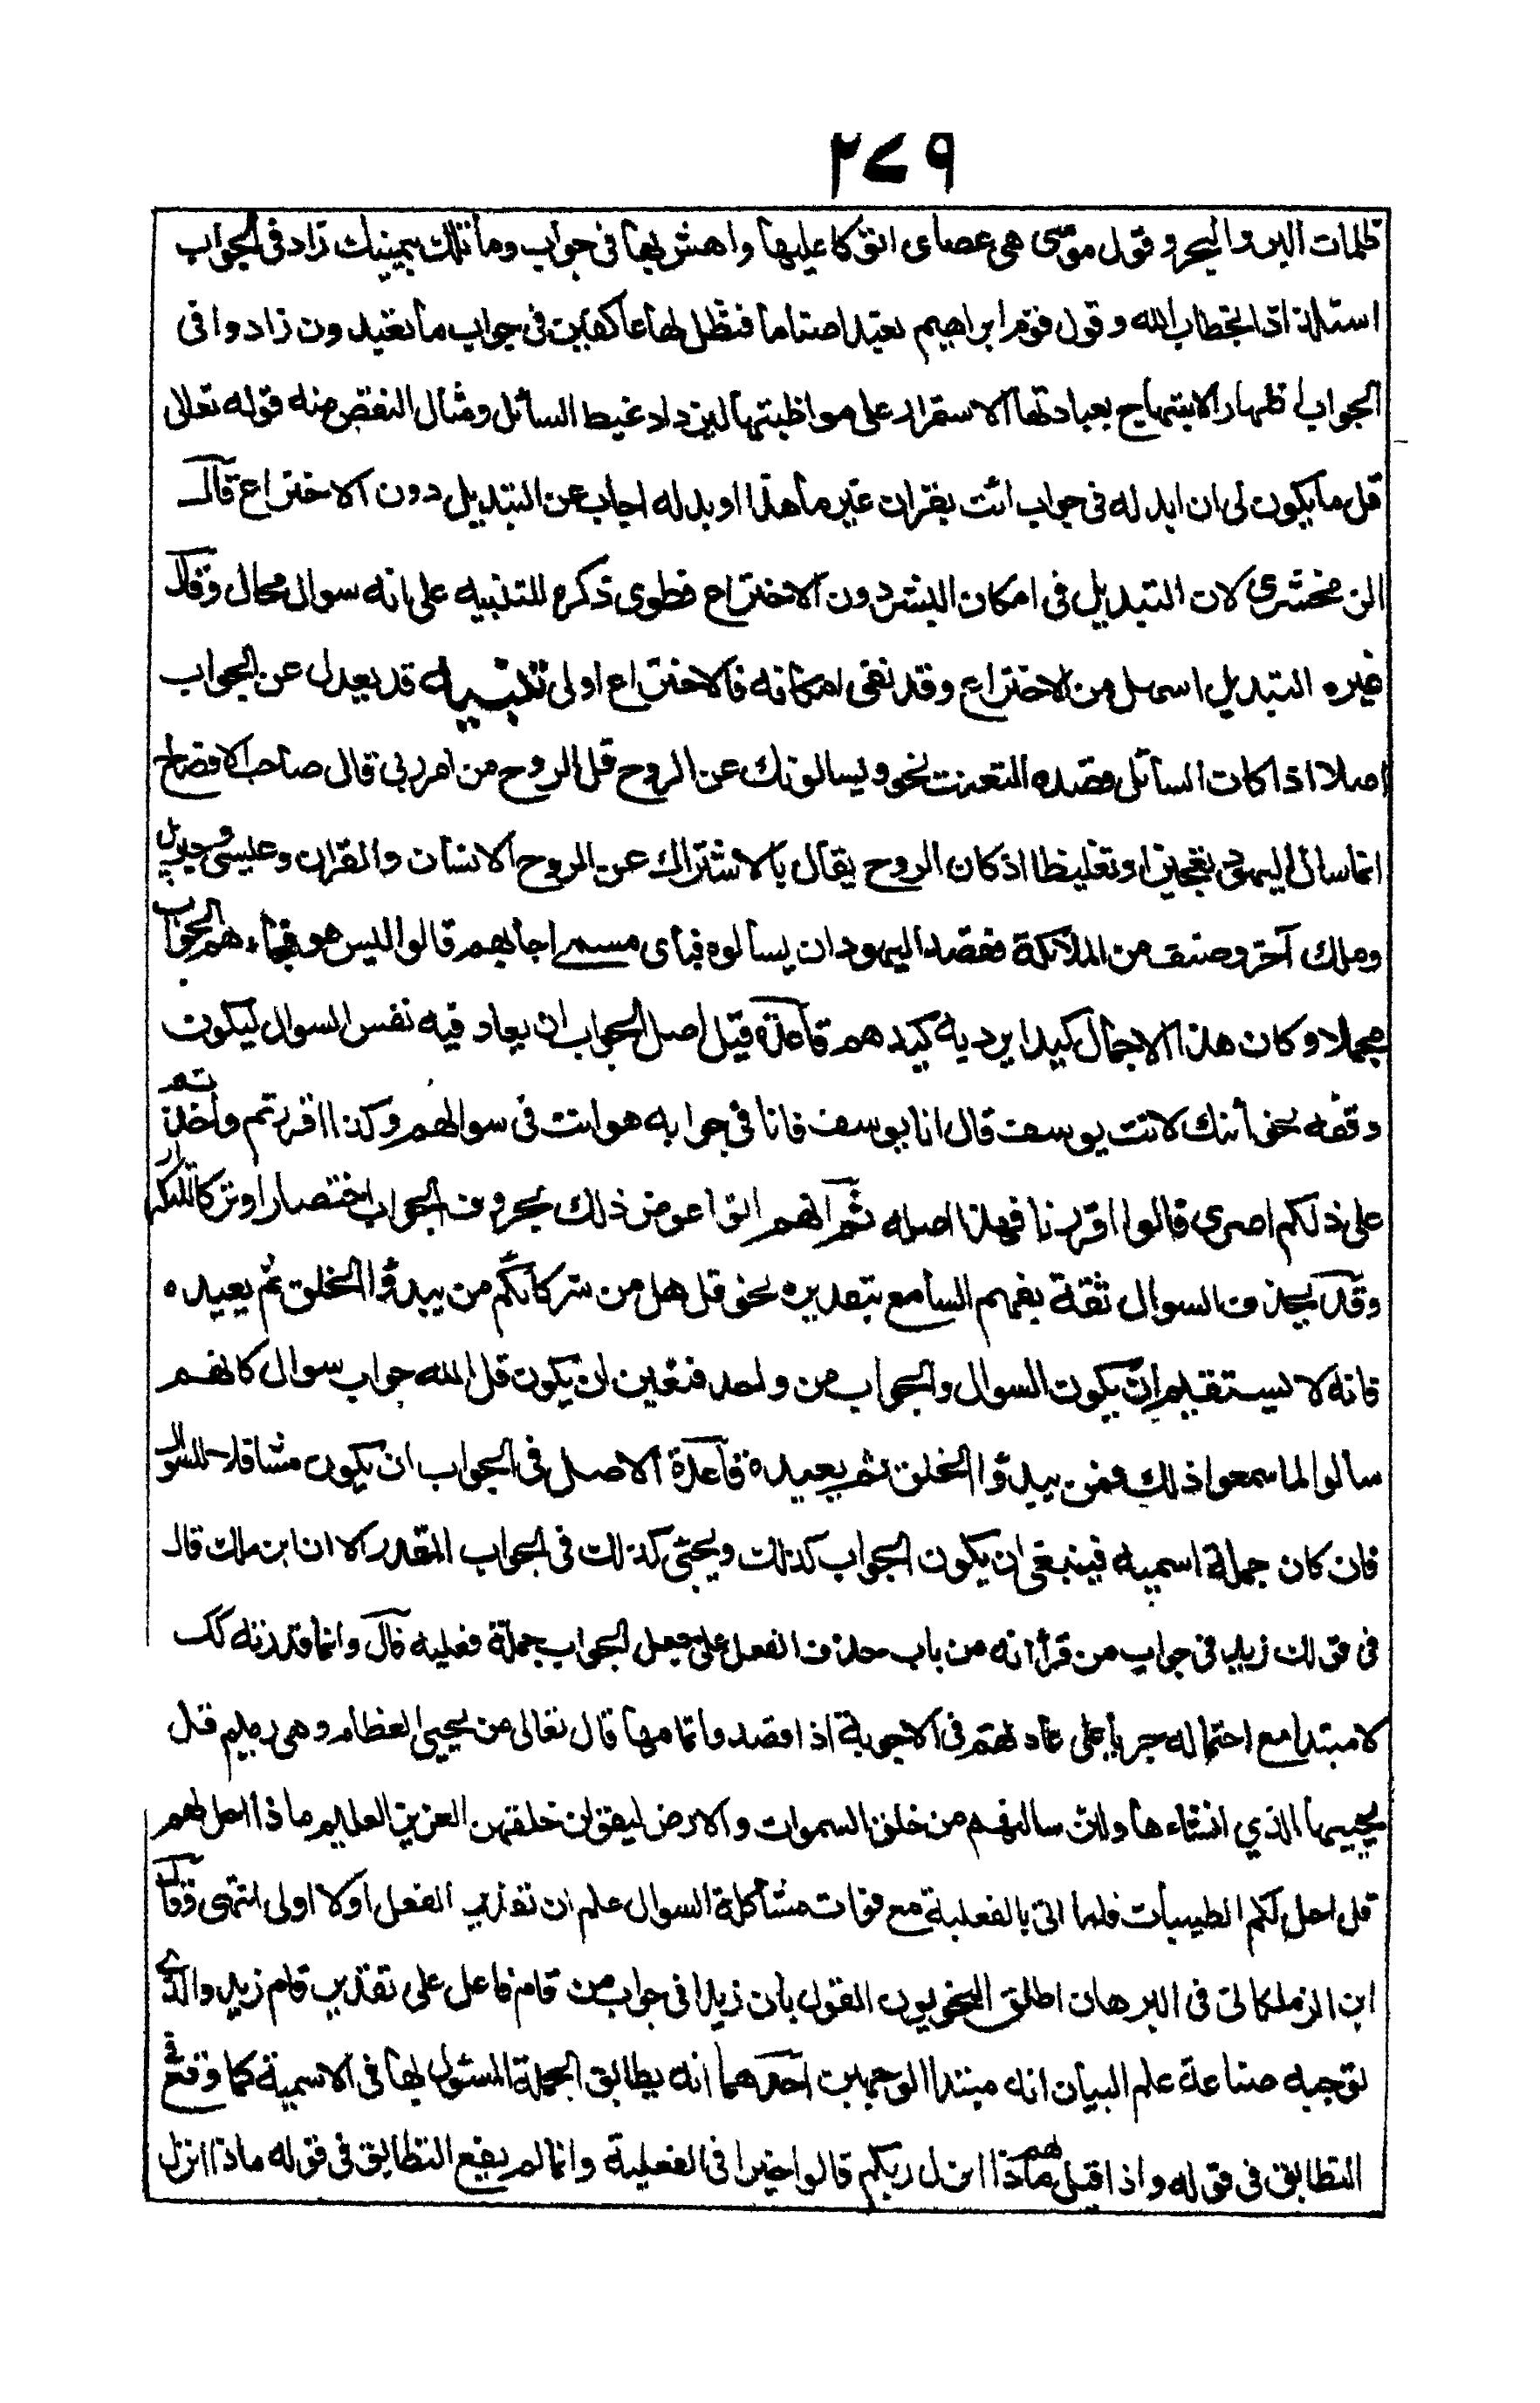 ٢٧٩
ظلمات البر والبحر وقول موسى هى عصاى اتوكا عليها واهش بها فى جواب وما تلك بيمينك زاد فى الجواب
استلذاذا بخطاب الله وقول قوم ابراهيم نعبد اصناما فنظل لها عاكفين فى جواب ما تعبدون زادوا فى
الجواب اظهار الابتهاج بعبادتها الاستمرار على مواظبتها ليزداد غيظ السائل ومثال النقص منه قوله تعالى
قل ما يكون لى ان ابدله فى جواب ائت بقران غير ما هذا او بدله اجاب عن التبديل دون الاختراع قال
الزمخشرى لان التبديل فى امكان البشر دون الاختراع فطوى ذكره للتنبيه على انه سوال محال وقال
غيره التبديل اسهل من الاختراع وقد نفى امكانه فالاختراع اولى تنبيه قد يعدل عن الجواب
اصلا اذا كان السائل قصده التعنت نحو ويسالونك عن الروح قل الروح من امر ربى قال صاحب الافصاح
انما سال اليهود تعجيزا وتغليظا اذ كان الروح يقال بالاشتراك عن الروح الانسان والقران وعيسى وجبريل
وملك آخر وصنف من الملائكة فقصد اليهود ان يسالوه فباى مسمى اجابهم قالوا ليس هو فجاءهم الجواب
مجملا وكان هذا الاجمال كيدا يرد به كيدهم قاعدة قيل اصل الجواب ان يعاد فيه نفس السوال ليكون
وفقه نحو أئنك لانت يوسف قال انا يوسف فانا فى جوابه هو انت فى سوالهم وكذا ااقررتم واخذتم
على ذلكم اصرى قالوا اقررنا فهذا اصله ثم انهم اتوا عوض ذلك بحروف الجواب اختصارا وتركا للتكرار
وقد يحذف السوال ثقة بفهم السامع بتقديره نحو قل هل من شركائكم من يبدؤا الخلق ثم يعيده
فانه لا يستقيم ان يكون السوال والجواب من واحد فتعين ان يكون قل الله جواب سوال كانهم
سالوا لما سمعوا ذلك فمن يبدؤا الخلق ثم يعيده قاعدة الاصل فى الجواب ان يكون مشاكلا للسوال
فان كان جملة اسميه فينبغى ان يكون الجواب كذلك ويجئى كذلك فى الجواب المقدر الا ان ابن مالك قال
فى قولك زيد فى جواب من قرأ انه من باب حذف الفعل على جعل الجواب جملة فعليه قال وانما قدرته كك
لا مبتدا مع احتماله جريا على عادتهم فى الاجوبة اذا قصدوا تمامها قال تعالى من يحيى العظام وهى رميم قل
يحييها الذي انشاءها ولئن سالتهم من خلق السموات والارض ليقولن خلقهن العزيز العليم ماذا احل لهم
قل احل لكم الطيبات فلما اتى بالفعلية مع فوات مشاكلة السوال علم ان تقدير الفعل اولا اولى انتهى وقال
ابن الزملكانى فى البرهان اطلق النحويون القول بان زيدا فى جواب من قام فاعل على تقدير قام زيد والذى
توجبه صناعة علم البيان انه مبتدا لوجهين احدهما انه يطابق الجملة المسئول بها فى الاسمية كما وقع
التطابق فى قوله واذا قيل لهم ماذا انزل ربكم قالوا خيرا فى الفعلية وانما لم يقع التطابق فى قوله ماذا انزل